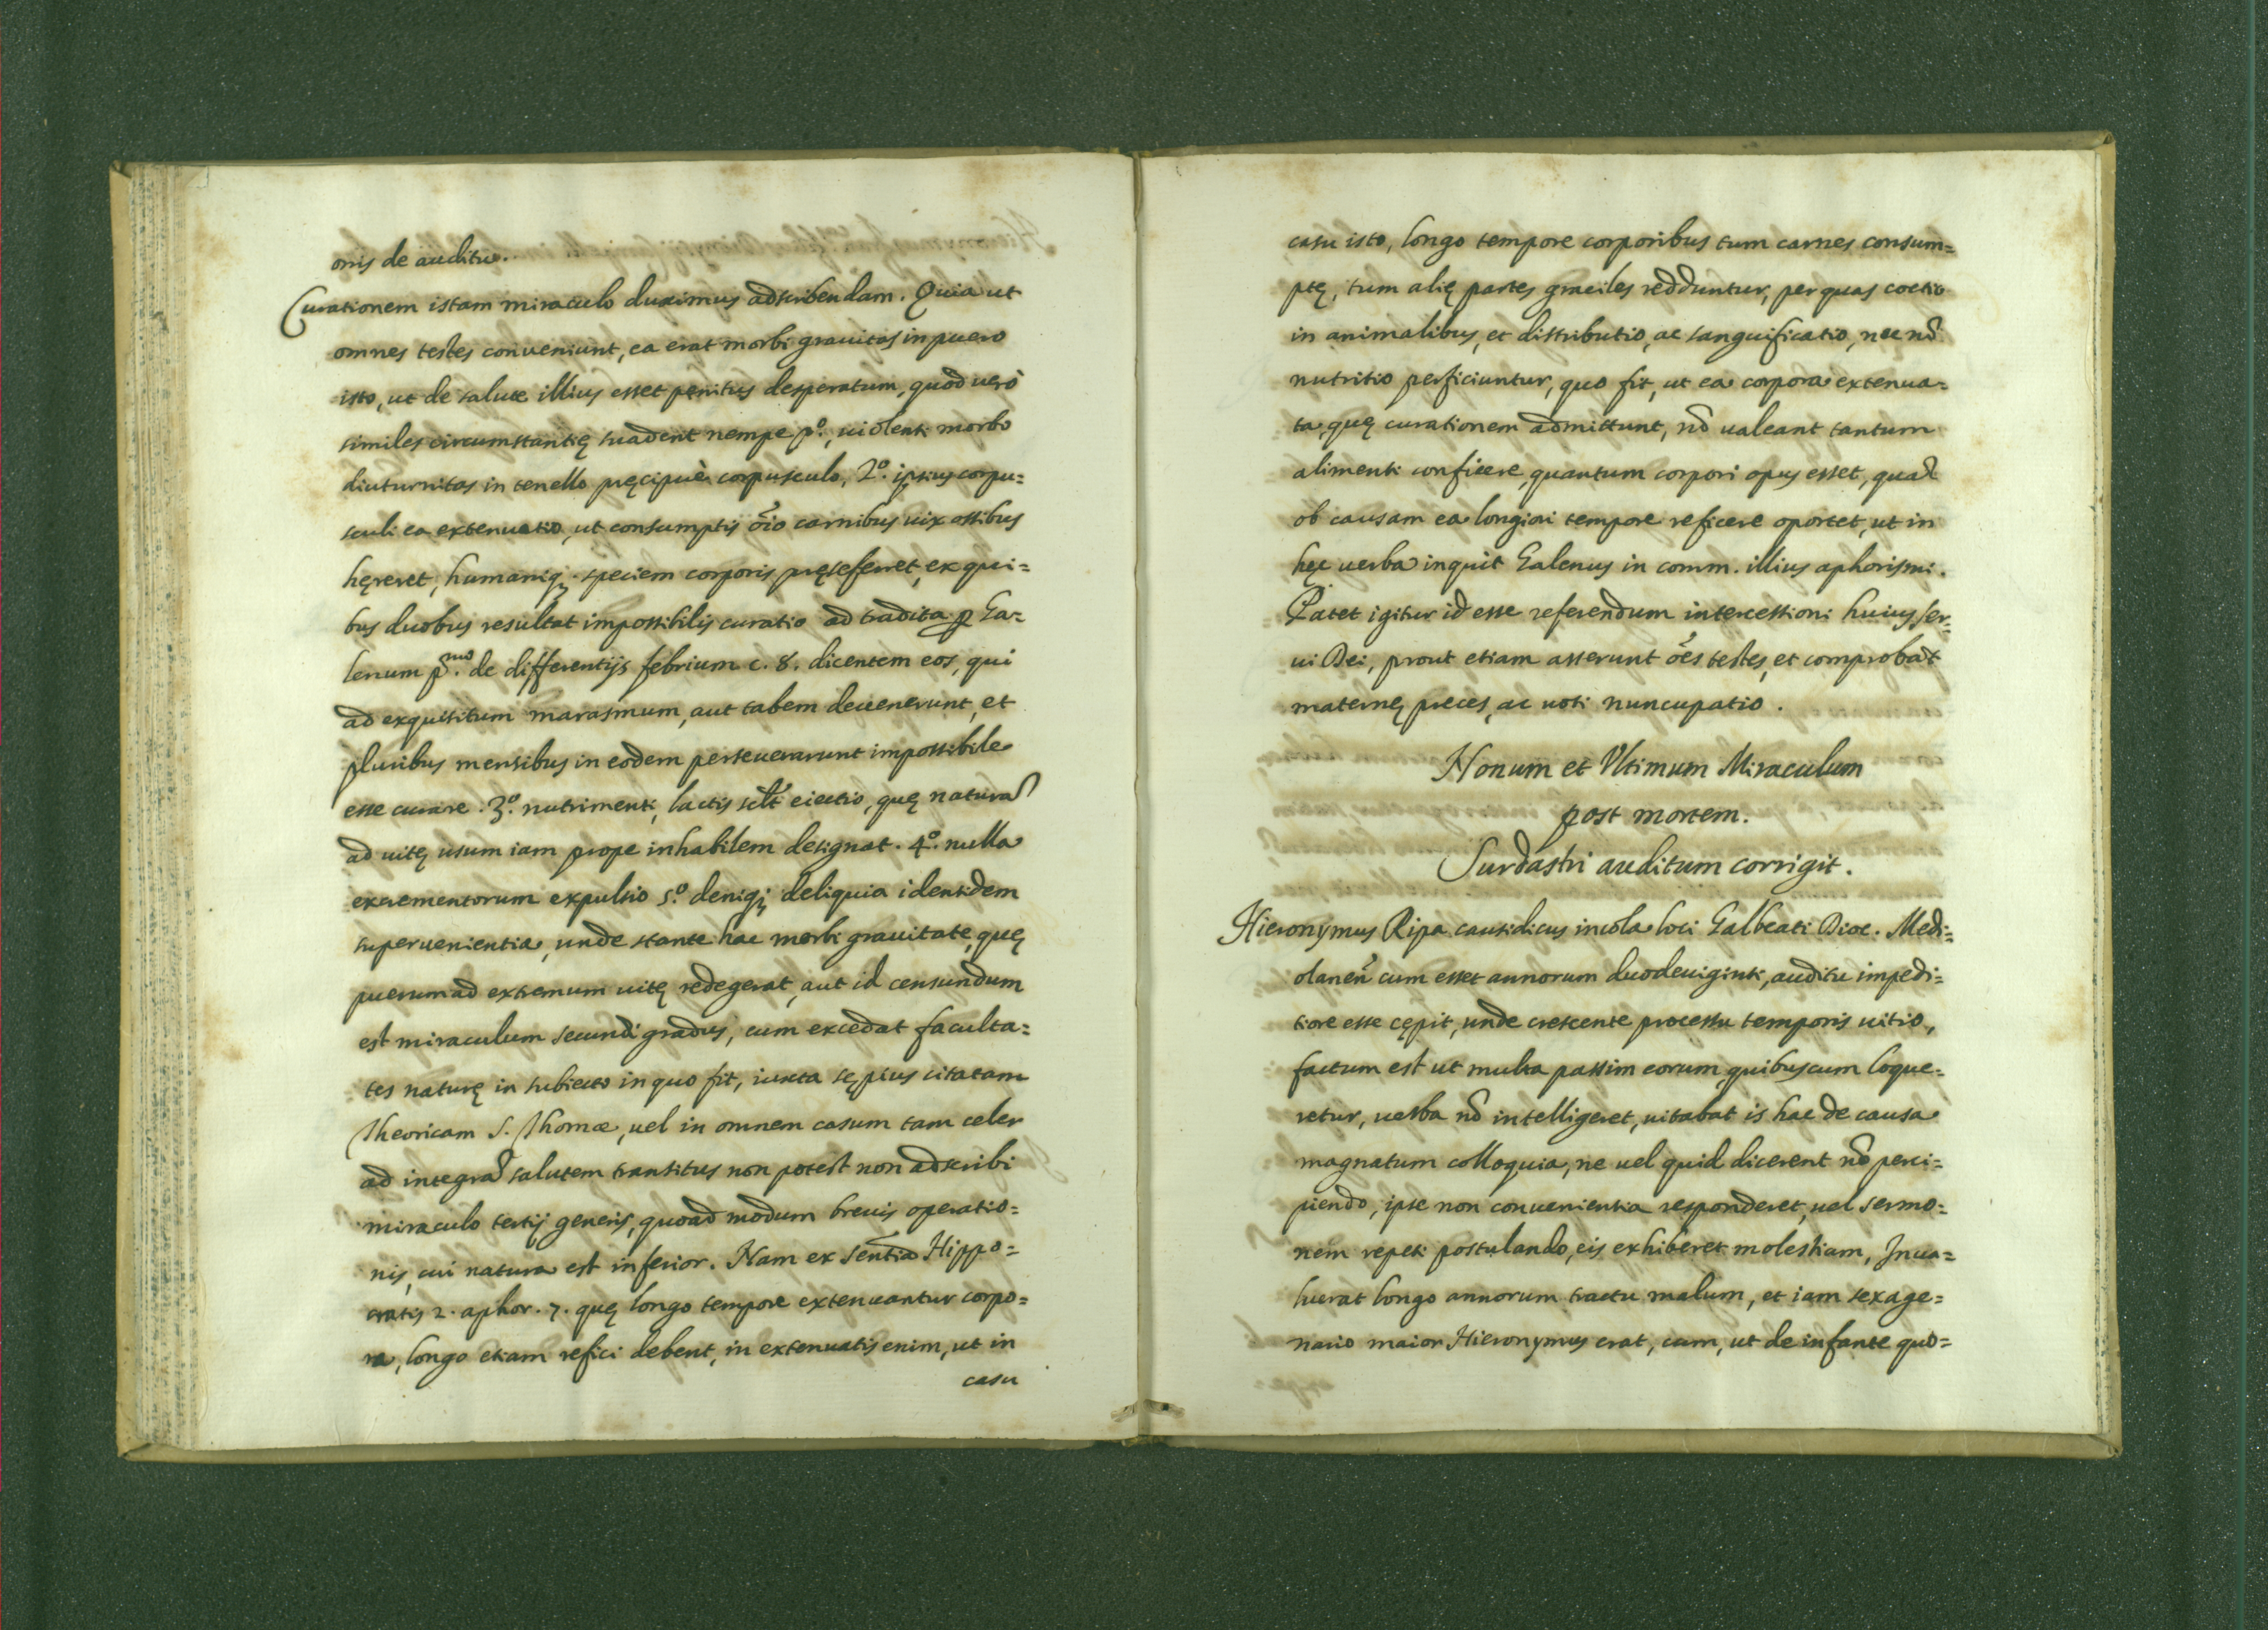 onis de auditu.
Curationem istam miraculo duximus adscribendam. Quia ut
omnes testes conueniunt, ea erat morbi grauitas in puero
isto, ut de salute illius esset penitus desperatum, quod uerò
similes circumstantię suadent nempe pº., uiolenti morbo
diuturnitas in tenello pręcipuè corpusculo, 2º. ipsius corpu=
sculi ea extenuatio, ut consumptis õio carnibus uix ossibus
hęreret, humaniq; speciem corporis pręseferret, ex qui=
bus duobus resultat impossibilis curatio ad tradita p Ga=
lenum pmo. de differentijs febrium c. 8. dicentem eos, qui
ad exquisitum marasmum, aut tabem deuenerunt, et
pluribus mensibus in eodem perseuerarunt impossibile
esse curare. 3º. nutrimenti, lactis sclt̃ eiectio, quę naturã
ad uitę usum iam prope inhabilem designat. 4º. nulla
excrementorum expulsio 5º. deniq; deliquia identidem
superuenientia, unde stante hac morbi grauitate, quę
puerum ad extremum uitę redegerat, aut id censundum
est miraculum secundi gradus, cum excedat faculta=
tes naturę in subiecto in quo fit, iuxta sępius citatam
Theoricam S. Thomæ, uel in omnem casum tam celer
ad integrã salutem transitus non potest non adscribi
miraculo tertij generis, quoad modum breuis operatio=
nis, cui natura est inferior. Nam ex sentĩa Hippo=
cratis 2. aphor. 7. quę longo tempore extenuantur corpo=
ra, longo etiam refici debent, in extenuatis enim, ut in
casu
casu isto, longo tempore corporibus tum carnes consum=
ptę, tum alię partes graciles redduntur, per quas coctio
in animalibus, et distributio, ac sanguificatio, nec nõ
nutritio perficiuntur, quo fit, ut ea corpora extenua=
ta, quę curationem admittunt, nõ ualeant tantum
alimenti conficere, quantum corpori opus esset, quã
ob causam ea longiori tempore reficere oportet, ut in
hęc uerba inquit Galenus in comm. illius aphorismi.
Patet igitur id esse referendum intercessioni huius Ser=
ui Dei, prout etiam asserunt ões testes, et comprobãt
maternę preces, ac uoti nuncupatio.
Nonum et Vltimum Miraculum
post mortem.
Surdastri auditum corrigit.
Hieronymus Ripa causidicus incola loci Galbeati Dioc. Medi=
olaneñ cum esset annorum duodeuiginti, auditu impedi=
tiore esse cępit, unde crescente processu temporis uitio,
factum est ut multa passim eorum, quibuscum loque=
retur, uerba nõ intelligeret, uitabat is hac de causa
magnatum colloquia, ne uel quid dicerent nõ perci=
piendo, ipse non conuenientia responderet, uel sermo=
nem repeti postulando, eis exhiberet molestiam, Inua=
luerat longo annorum tractu malum, et iam sexage=
nario maior Hieronymus erat, cum, ut de infante quo=